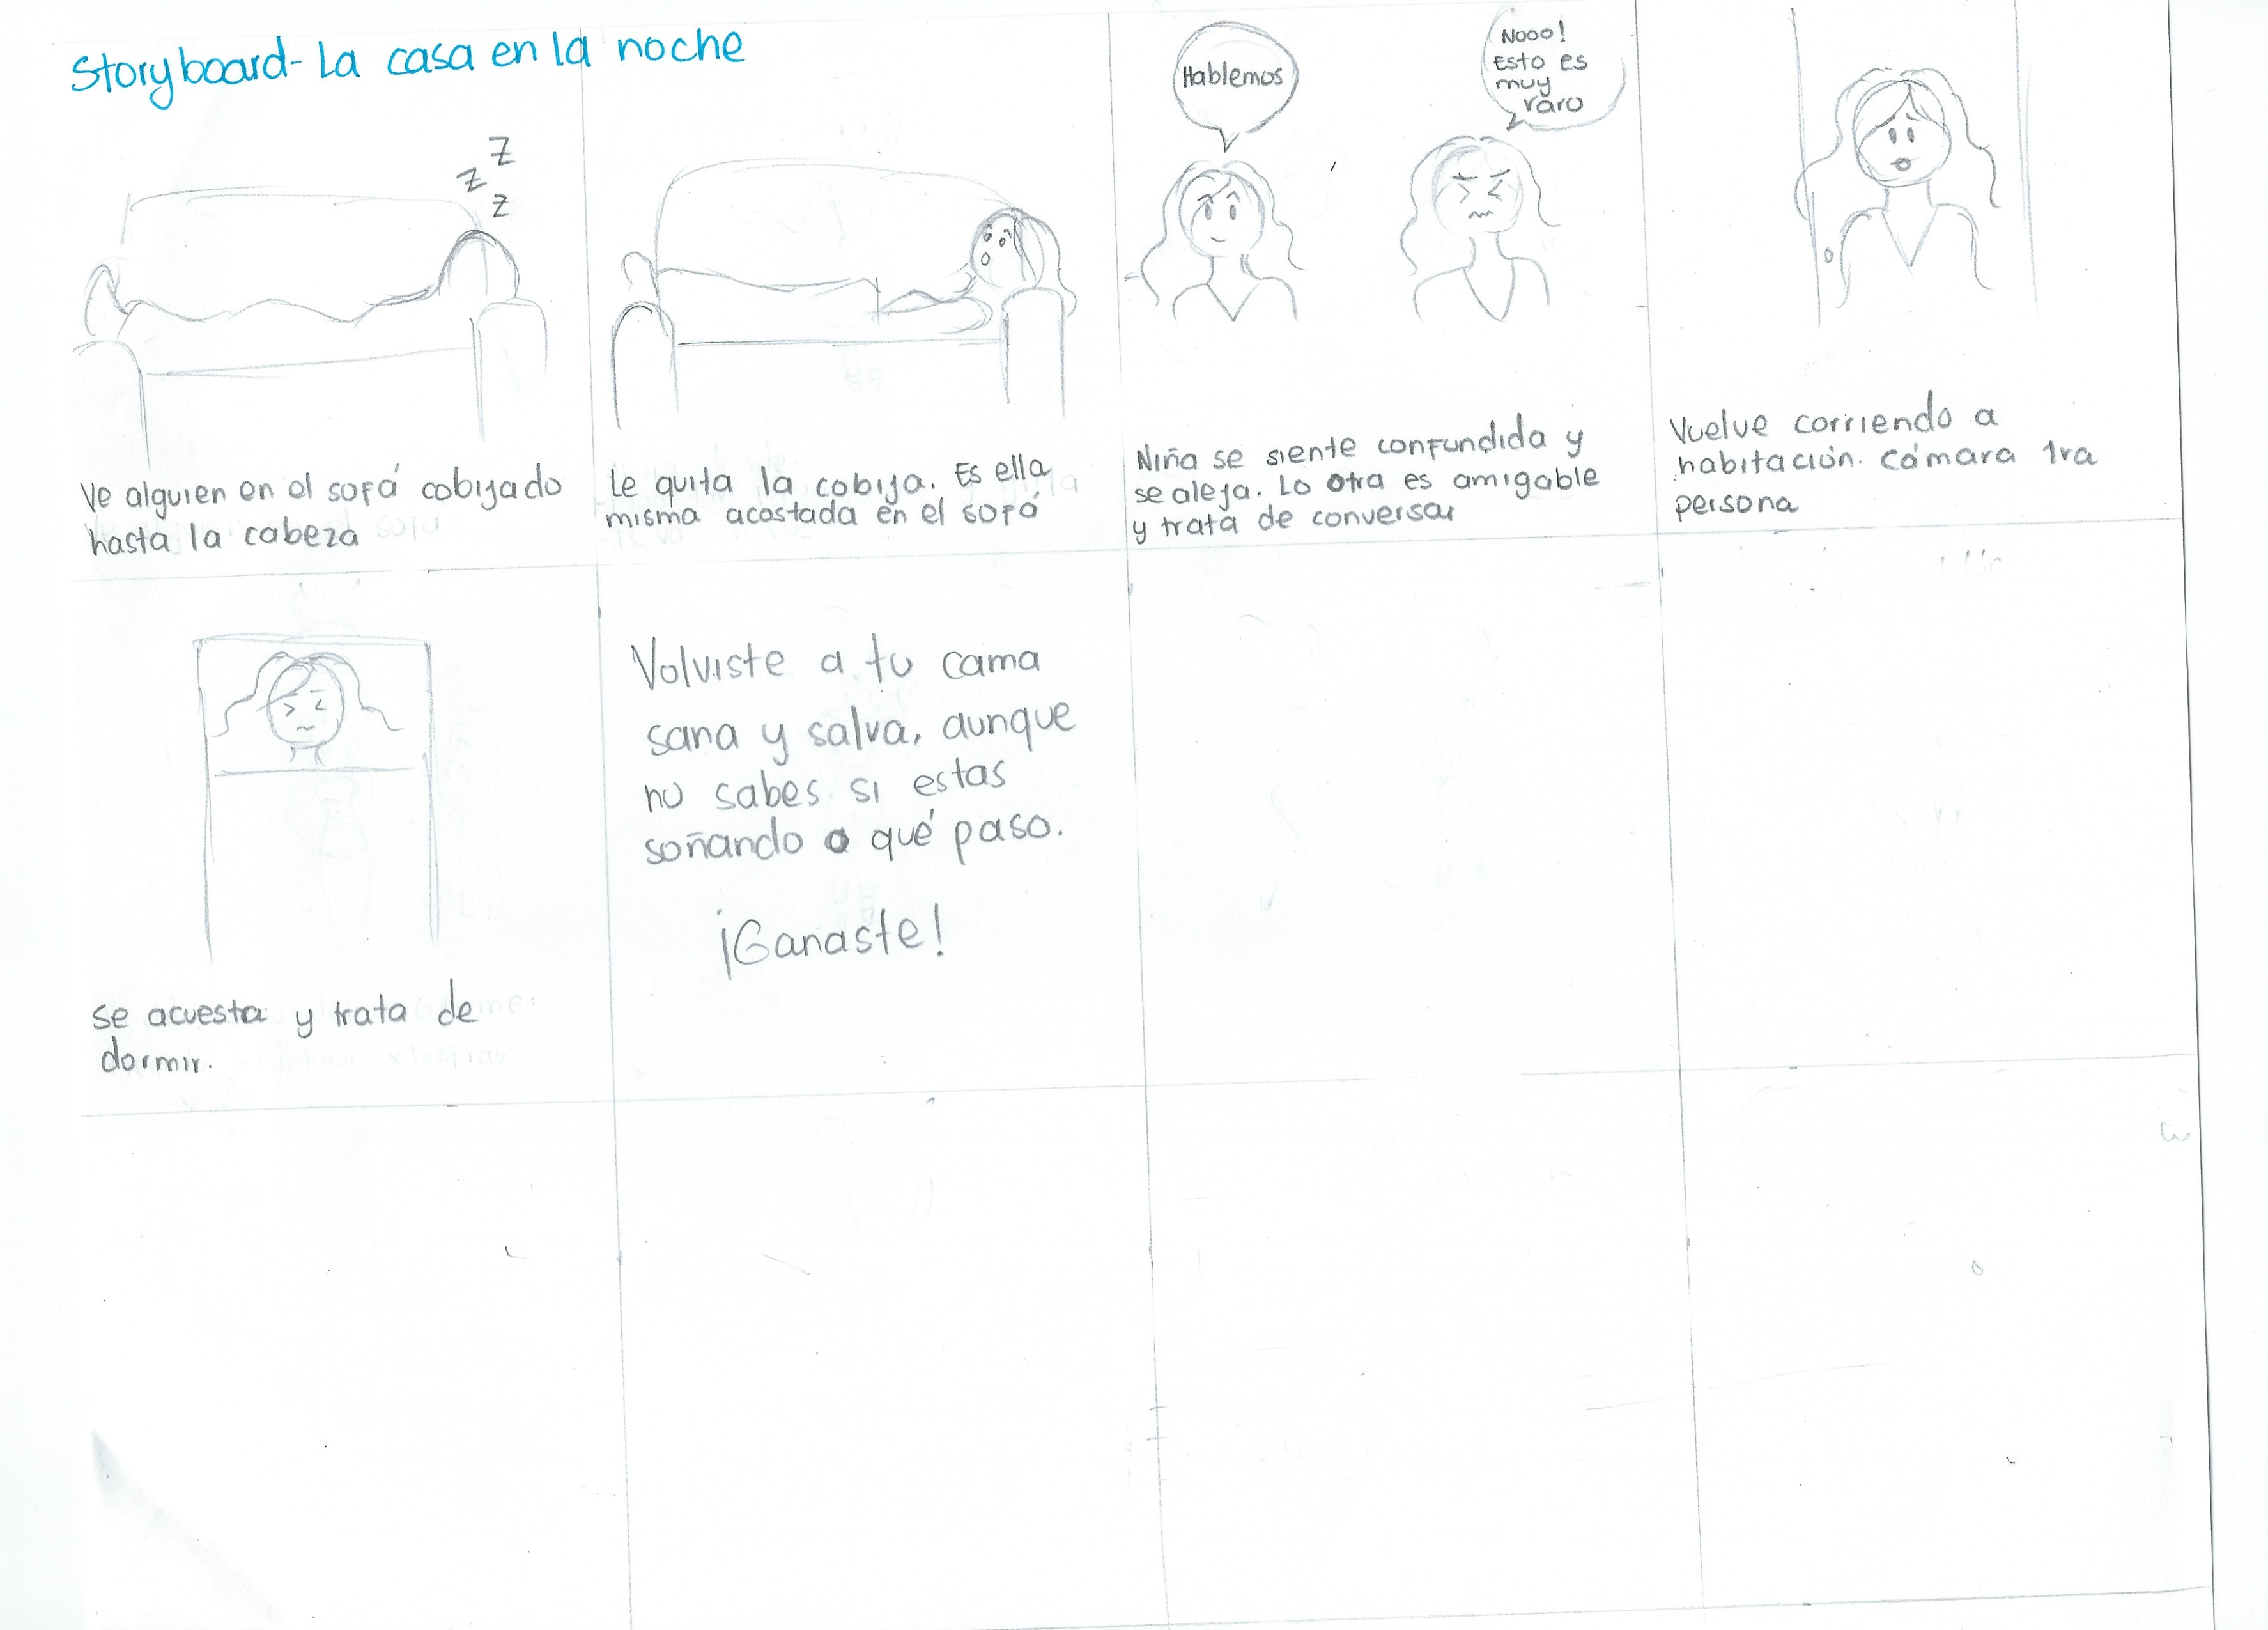 Storyboard- La casa en la noche
z z
z
Ve alguien en el sofá cobijado
hasta la cabeza
Le quita la cobija. Es ella
misma acostada en el sofá
Hablemos
Nooo!
Esto es
muy
raro
Niña se siente confundida y
se aleja. La otra es amigable
y trata de conversar
Vuelve corriendo a
habitación. Cámara 1ra
persona
se acuesta y trata de
dormir.
Volviste a tu cama
sana y salva, aunque
no sabes si estas
soñando o qué paso.
¡Ganaste!